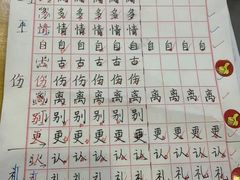 多 多 多 多 多
情 情 情 情 情 情
自 自 自 自 自 自 自 自 自
古 古 古 古 古
伤 伤 伤 伤 伤 伤 伤
离 离 离 离 离 离 离 离 离
别 别 别 别 别
更 更 更 更 更 更 更 更
认 认 认 认 认 认 认
礼 礼 礼 礼 礼 礼